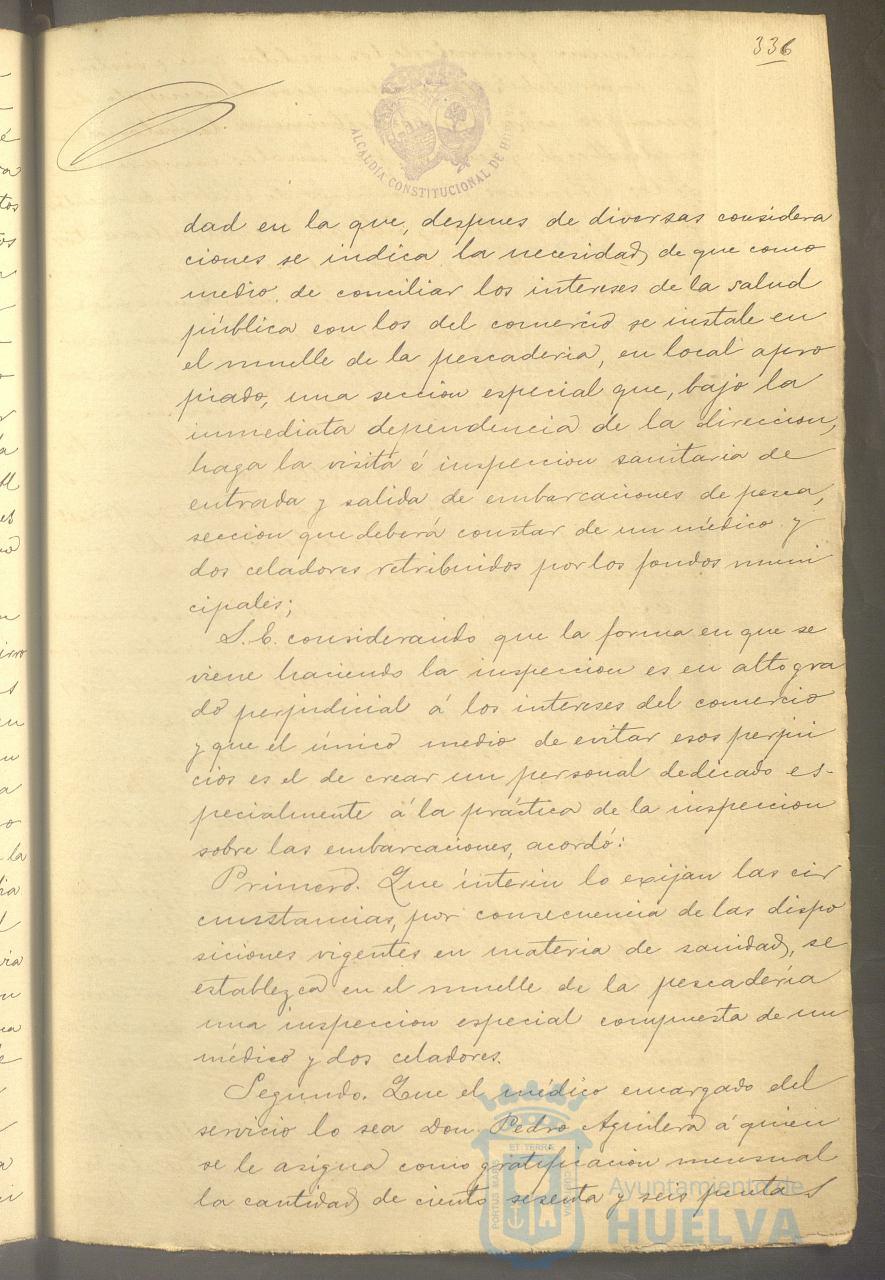 336
ALCALDÍA CONSTITUCIONAL DE HUELVA
dad en la que, despues de diversas considera
ciones se indica la necesidad, de que como
medio de conciliar los intereses de la salud
pública con los del comercio se instale en
el muelle de la pescaderia, en local apro
piado, una seccion especial que, bajo la
inmediata dependencia de la direccion,
haga la visita é inspeccion sanitaria de
entrada y salida de embarcaciones de pesca,
seccion que deberá constar de un médico y
dos celadores retribuidos por los fondos muni
cipales;
S. E. considerando que la forma en que se
viene haciendo la inspeccion es en alto gra
do perjudicial á los intereses del comercio
y que el único medio de evitar esos perjui
cios es el de crear un personal dedicado es-
pecialmente á la práctica de la inspeccion
sobre las embarcaciones, acordó:
Primero. Que ínterin lo exijan las cir
cunstancias, por consecuencia de las dispo
siciones vigentes en materia de sanidad, se
establezca en el muelle de la pescadería
una inspeccion especial compuesta de un
médico y dos celadores.
Segundo. Que el médico encargado del
servicio lo sea Don Pedro Aguilera á quien
se le asigna como gratificacion mensual
la cantidad de ciento sesenta y seis pesetas
PORTUS MARIS ET TERRAE CUSTODIA
Ayuntamiento de
HUELVA